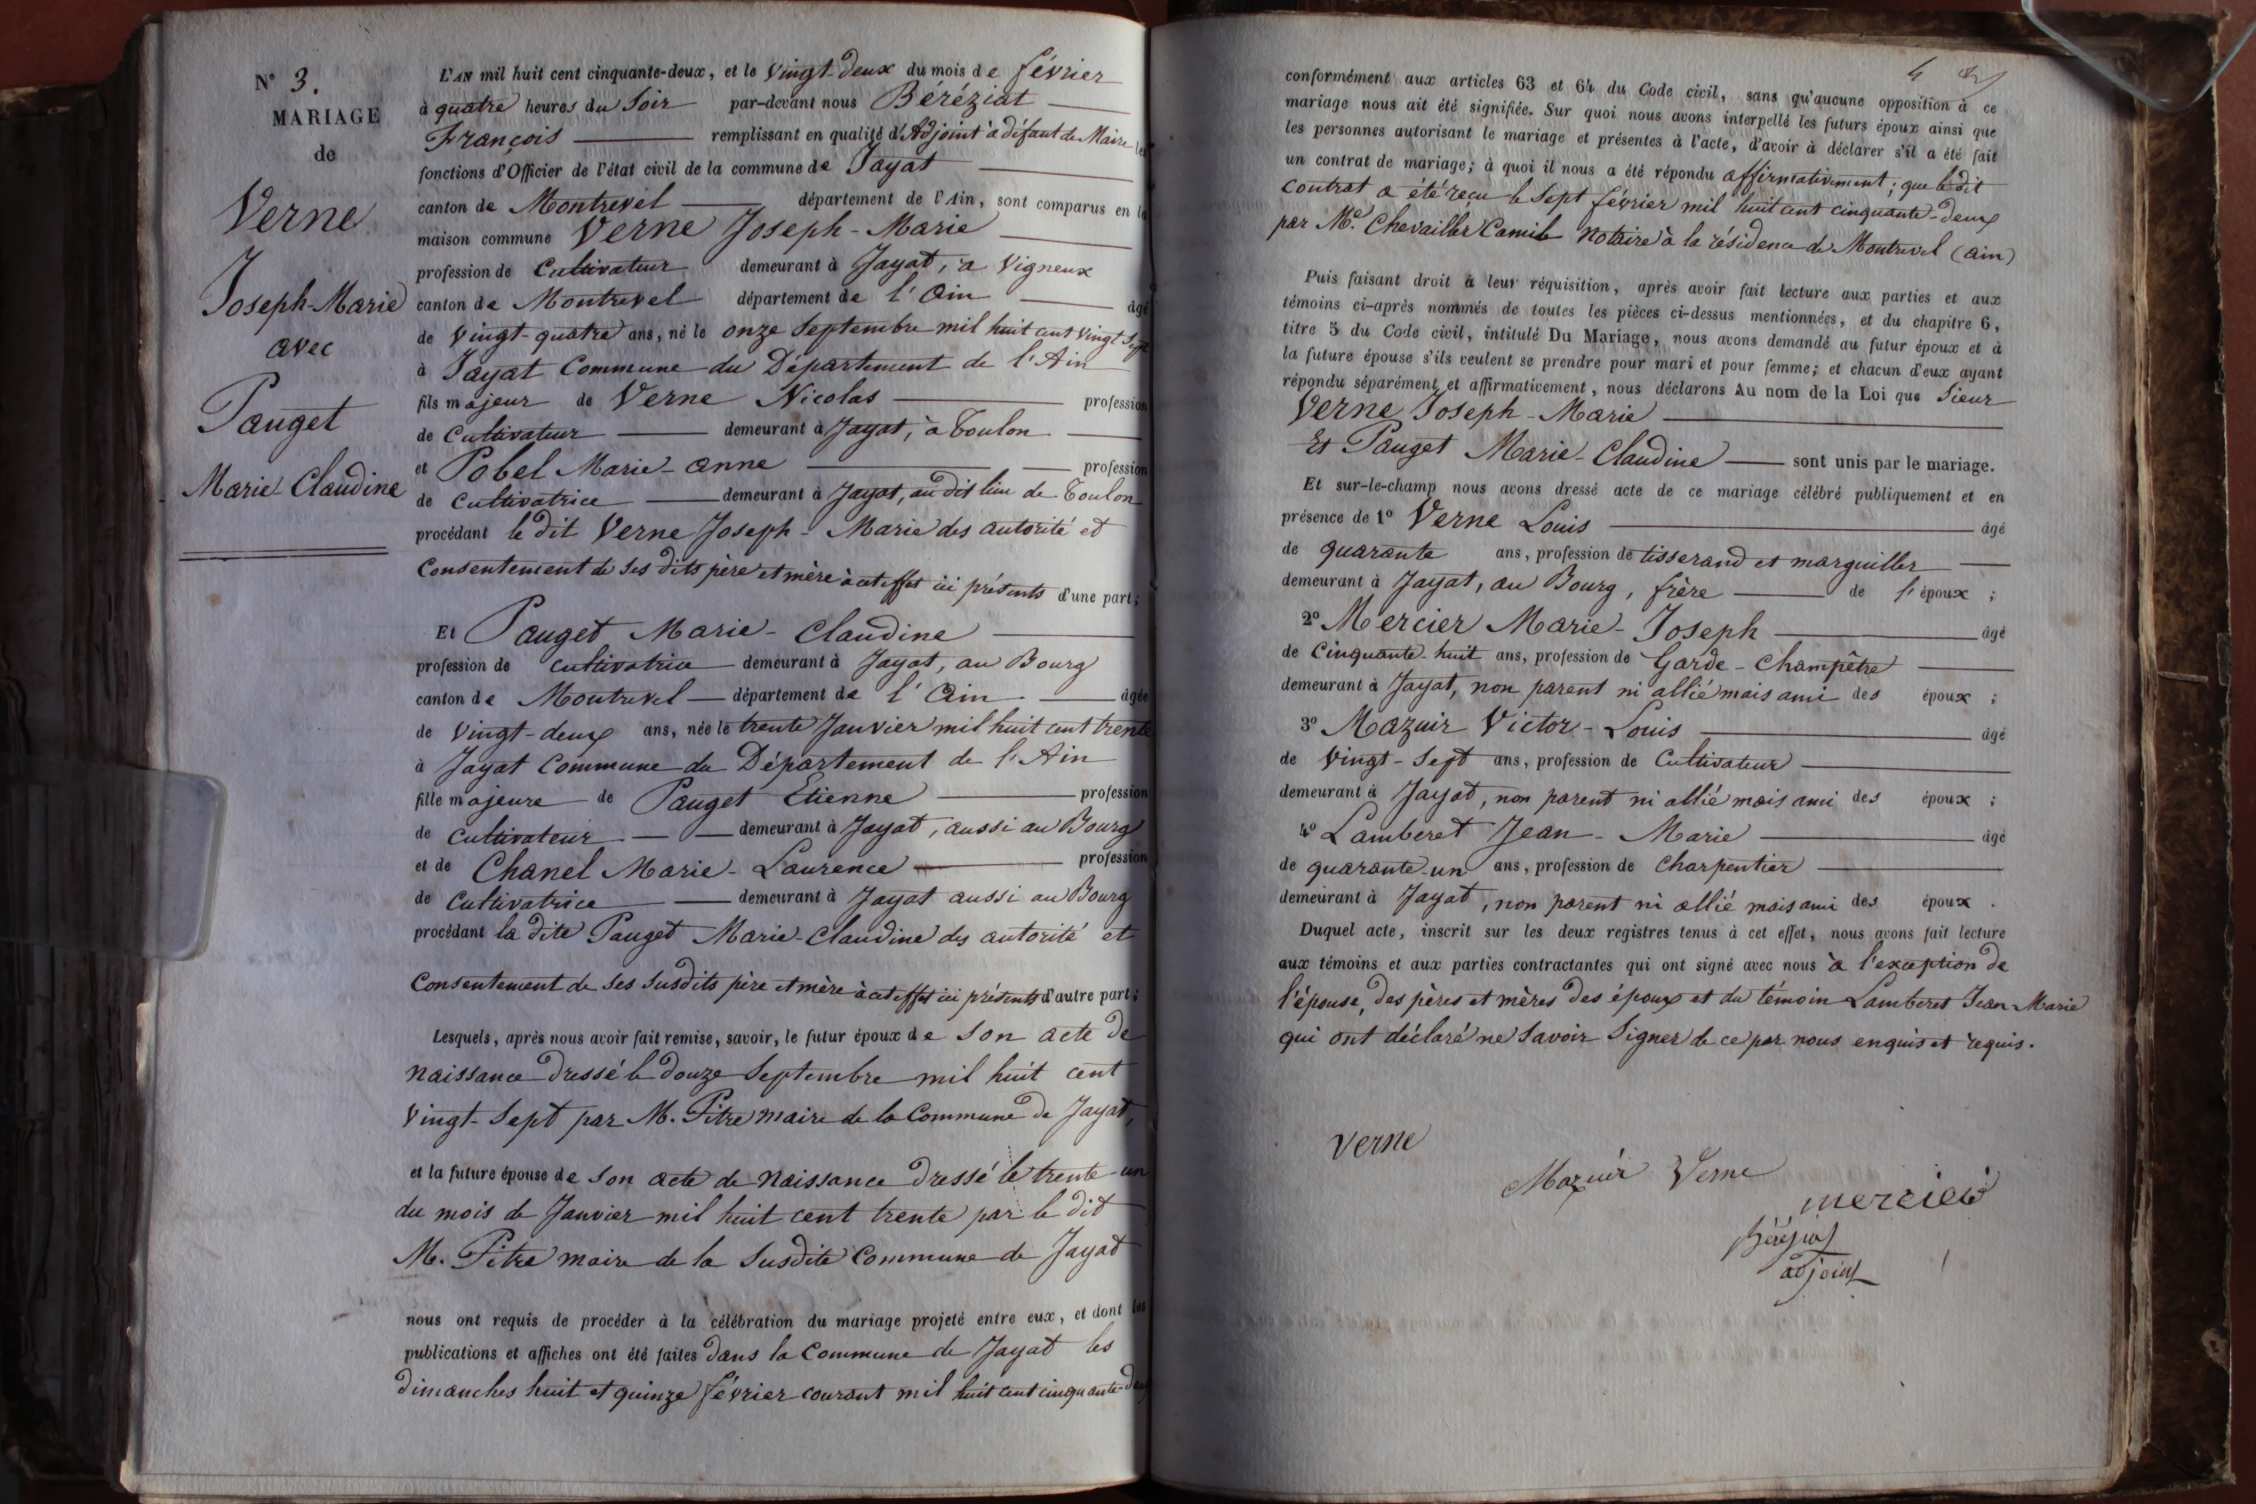 N° 3.
MARIAGE
de
Verne
Joseph-Marie
avec
Pauget
Marie-Claudine
L'AN mil huit cent cinquante-deux, et le vingt-deux du mois de février
à quatre heures du Soir par-devant nous Béréziat
François remplissant en qualité d'Adjoint à défaut de Maire les
fonctions d'Officier de l'état civil de la commune de Jayat
canton de Montrevel département de l'Ain, sont comparus en la
maison commune Verne Joseph-Marie
profession de Cultivateur demeurant à Jayat, à Vigneux
canton de Montrevel département de l'Ain âgé
de vingt-quatre ans, né le onze Septembre mil huit cent vingt Sept
à Jayat Commune du Département de l'Ain
fils majeur de Verne Nicolas profession
de Cultivateur demeurant à Jayat, à Toulon
et Pobel Marie-Anne profession
de Cultivatrice demeurant à Jayat, au dit lieu de Toulon
procédant le dit Verne Joseph-Marie des autorité et
Consentement de ses dits père et mère à cet effet ici présents d'une part;
Et Pauget Marie-Claudine
profession de Cultivatrice demeurant à Jayat, au Bourg
canton de Montrevel département de l'Ain âgée
de vingt-deux ans, née le trente Janvier mil huit cent trente
à Jayat Commune du Département de l'Ain
fille majeure de Pauget Etienne profession
de Cultivateur demeurant à Jayat, aussi au Bourg
et de Chanel Marie-Laurence profession
de Cultivatrice demeurant à Jayat aussi au Bourg
procédant la dite Pauget Marie-Claudine des autorité et
Consentement de ses susdits père et mère à cet effet ici présents d'autre part;
Lesquels, après nous avoir fait remise, savoir, le futur époux de son acte de
naissance dressé le douze Septembre mil huit cent
vingt-Sept par M. Pitre maire de la Commune de Jayat,
et la future épouse de son acte de naissance dressé le trente-un
du mois de Janvier mil huit cent trente par le dit
M. Pitre maire de la susdite Commune de Jayat
nous ont requis de procéder à la célébration du mariage projeté entre eux, et dont les
publications et affiches ont été faites dans la Commune de Jayat les
dimanches huit et quinze février courant mil huit cent cinquante-deux
4
conformément aux articles 63 et 64 du Code civil, sans qu'aucune opposition à ce
mariage nous ait été signifiée. Sur quoi nous avons interpellé les futurs époux ainsi que
les personnes autorisant le mariage et présentes à l'acte, d'avoir à déclarer s'il a été fait
un contrat de mariage; à quoi il nous a été répondu affirmativement; que le dit
contrat a été reçu le Sept février mil huit cent cinquante-deux
par Me. Chevailler Camile Notaire à la résidence de Montrevel (Ain)
Puis faisant droit à leur réquisition, après avoir fait lecture aux parties et aux
témoins ci-après nommés de toutes les pièces ci-dessus mentionnées, et du chapitre 6,
titre 5 du Code civil, intitulé Du Mariage, nous avons demandé au futur époux et à
la future épouse s'ils veulent se prendre pour mari et pour femme; et chacun d'eux ayant
répondu séparément et affirmativement, nous déclarons Au nom de la Loi que Sieur
Verne Joseph-Marie
Et Pauget Marie-Claudine sont unis par le mariage.
Et sur-le-champ nous avons dressé acte de ce mariage célébré publiquement et en
présence de 1° Verne Louis âgé
de quarante ans, profession de tisserand et marguiller
demeurant à Jayat, au Bourg, frère de l'époux ;
2° Mercier Marie-Joseph âgé
de Cinquante-huit ans, profession de Garde-Champêtre
demeurant à Jayat, non parent ni allié mais ami des époux ;
3° Mazuir Victor-Louis âgé
de vingt-Sept ans, profession de Cultivateur
demeurant à Jayat, non parent ni allié mais ami des époux ;
4° Lamberet Jean-Marie âgé
de quarante-un ans, profession de Charpentier
demeurant à Jayat, non parent ni allié mais ami des époux .
Duquel acte, inscrit sur les deux registres tenus à cet effet, nous avons fait lecture
aux témoins et aux parties contractantes qui ont signé avec nous à l'exception de
l'épouse, des pères et mères des époux et du témoin Lamberet Jean-Marie
qui ont déclaré ne savoir signer de ce par nous enquis et requis.
Verne
Mazuir Verne
mercier
Béréziat
adjoint